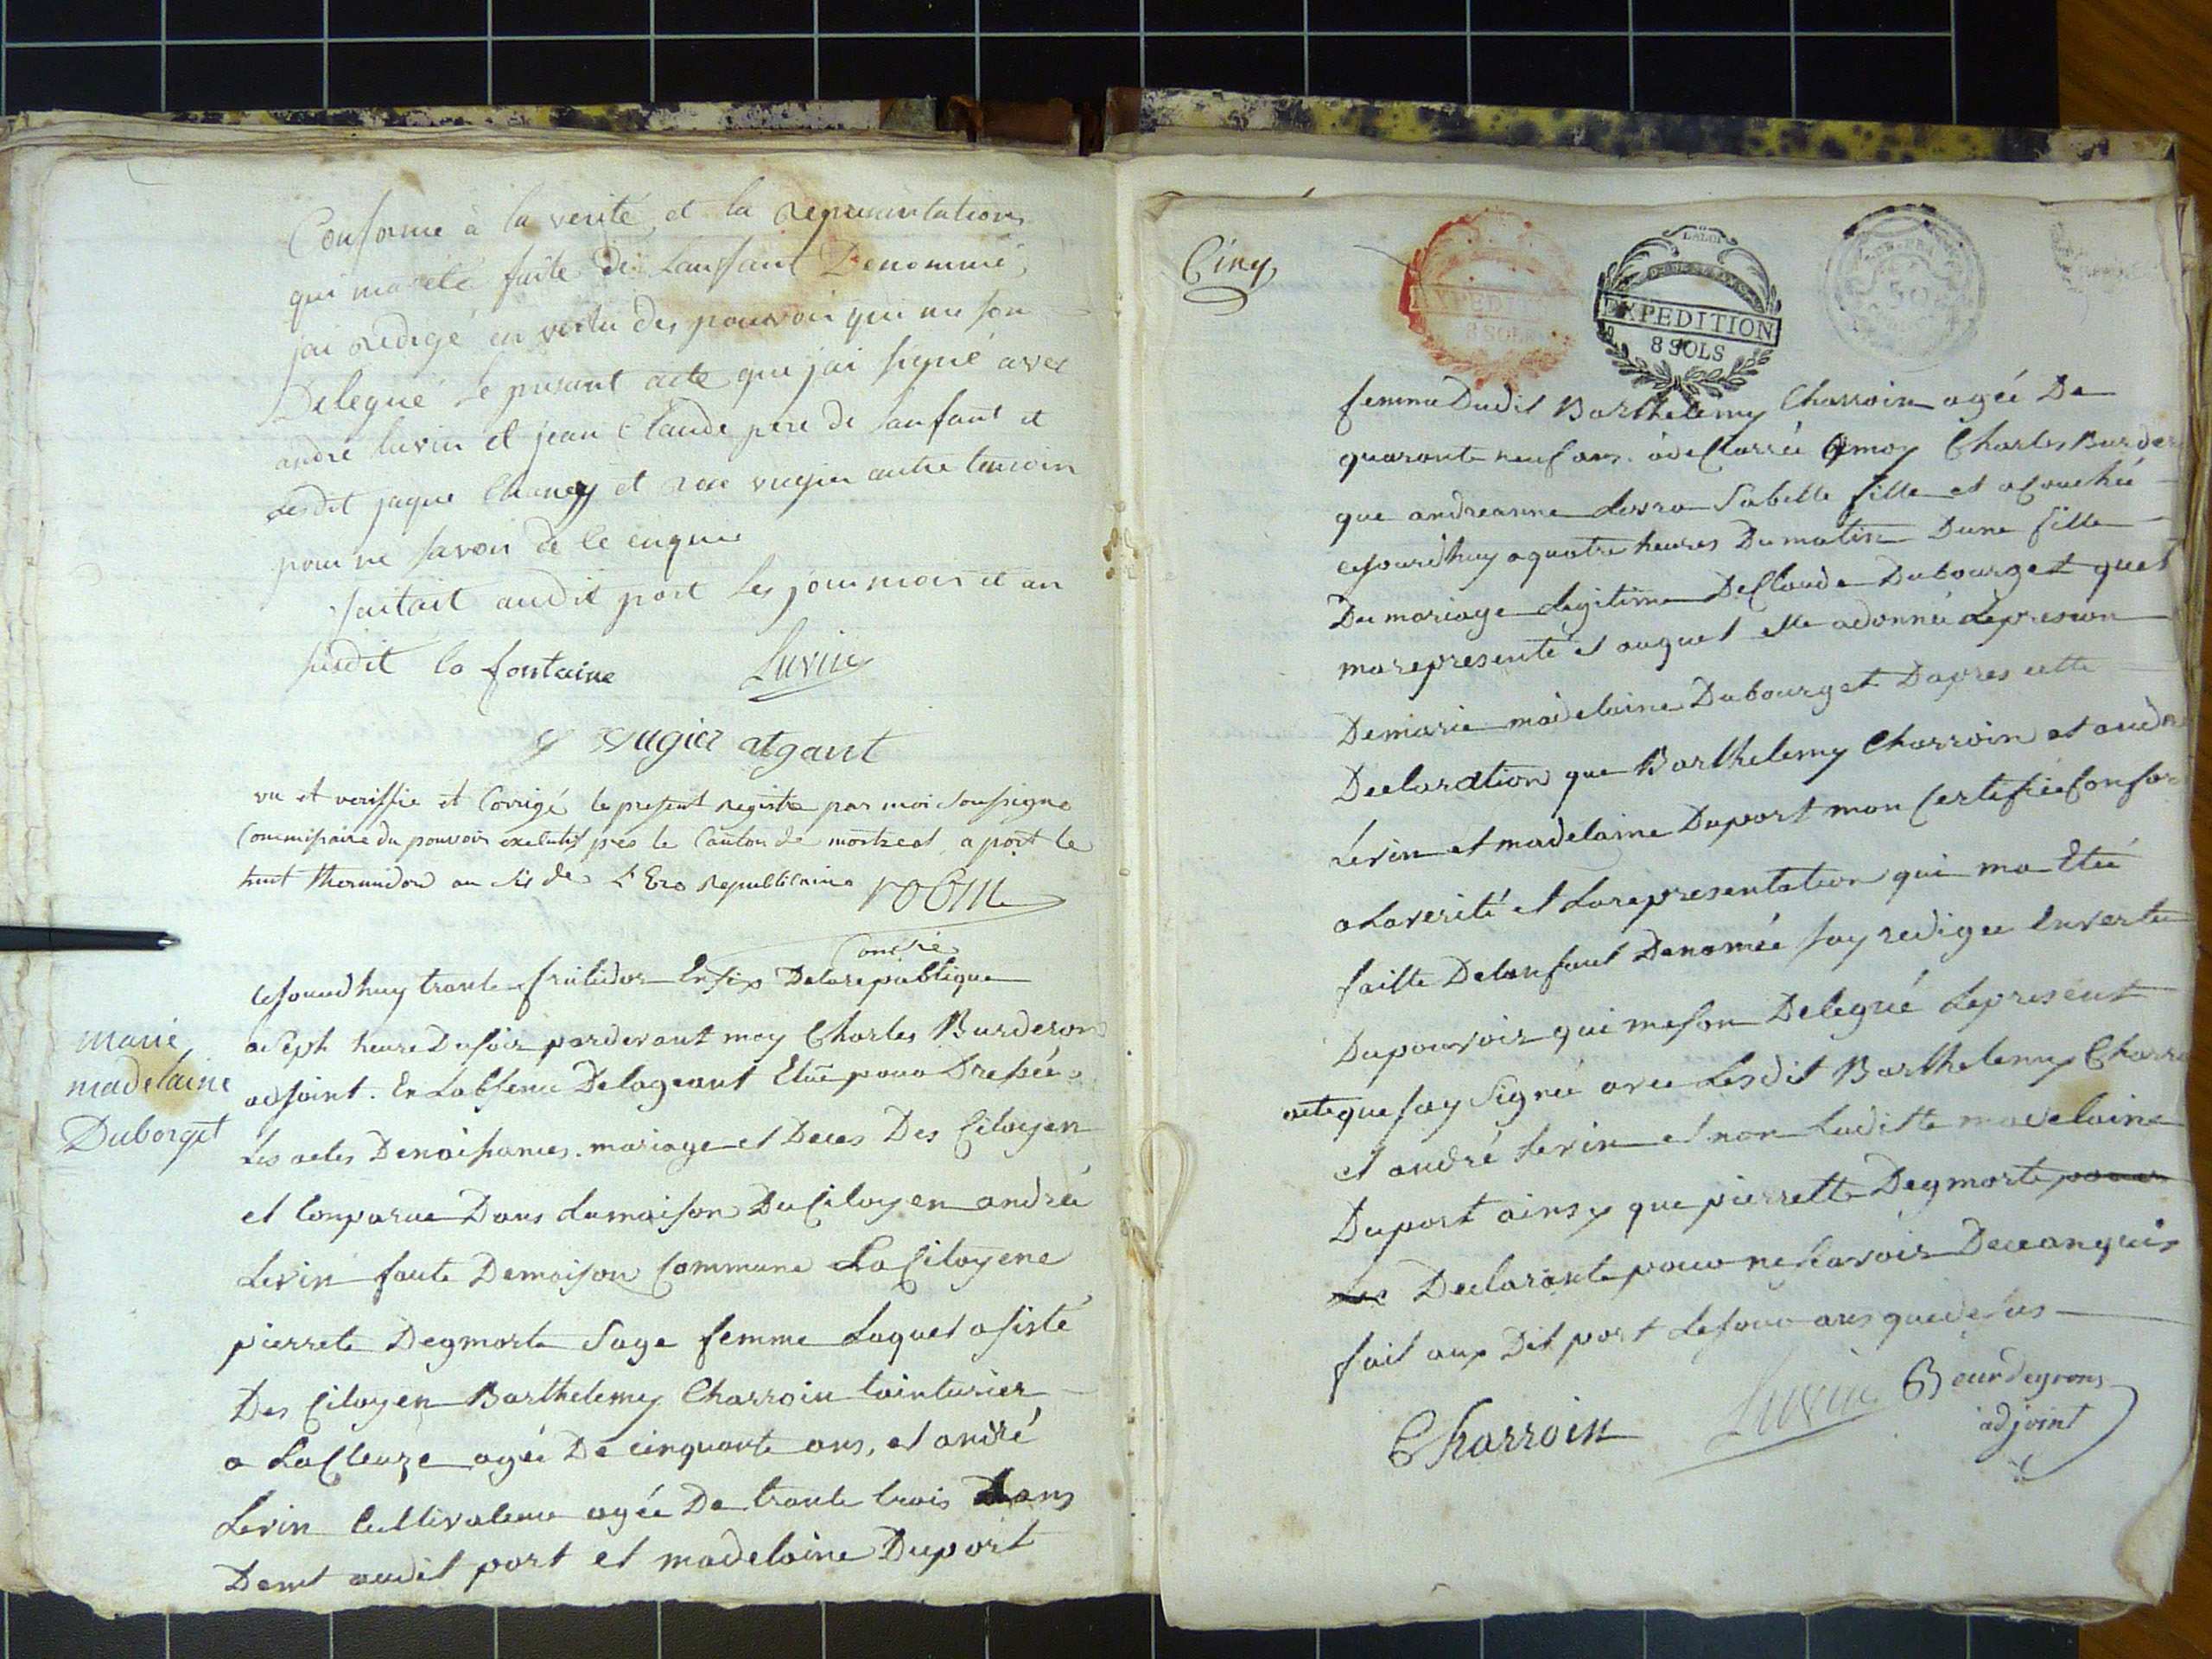 Conforme à la verité et la representation
qui ma été faite de lanfant Denommé,
jai redigé en vertu des pouvoir qui me son
Delegué le present acte que jai signé avec
andre luvin et jean Claude pere de lanfant et
lesdit jaque et non vugier autre temoin
pour ne savoir de ce enquis
faitait audit port les jour mois et an
susdit la fontaine Luvin
vugier agant
vu et veriffie et Corrigé le present registre par moi soussigne
Commissaire du pouvoir executif pres le Canton de montreal a port le
huit thermidor an six de L'Ere republicaine
cejourdhuy trante fruitidor Ensix Delarepublique
a Sept heure Du soir pardevant moy Charles Burderon
marie
madelaine
Duborget
adjoint. En Labsence Delageant Elue pour Dressée
Les actes Denaissances. mariage et Deces Des Citoyen
et Comparue Dans Lamaison Du Citoyen andreé
Levin faute Demaison Commune La Citoyene
pierrete Degmorte Sage femme Laquel asisté
Des Citoyen Barthelemy Charroin tainturier
a LaCleuze agée De cinquante ans, et andré
Levin Cultivateur agée De trante trois ans
Demt audit port et madelaine Duport
Cinq
EXPEDITION
8 SOLS
LA LOI
EXPEDITION
8 SOLS
femme Dudit Barthelemy Charroin agée De
quarante neuf ans. adeclarrée amoy Charles Burder
que andreanne Sabelle fille et acouchée
cejourdhuy a quatre heures Dumatin Dune fille
Du mariage Legitime DeClaude Dubourget quel
marepresenté et auquel elle adonnée Leprenom
Demarie madelaine Dubourget Dapres cette
Declaration que Barthelemy Charroin et andre
Levin et madelaine Duport mon Certifiée Confor
a Laverité et Larepresentation qui ma Etée
faitte Delanfant Denomée Jay redigee Envertu
Dupouvoir qui meson Delegué Lepresent
acte que Jay Signée avec Lesdit Barthelemy Charro
et andré Levin et non Laditte madelaine
Duport ainsy que pierrette Degmorte
Declarante pour ne Savoir Dece anquis
fait aux Dit port Lejour ans quedesus
Charroin Luvin Beurdeyrons
adjoint